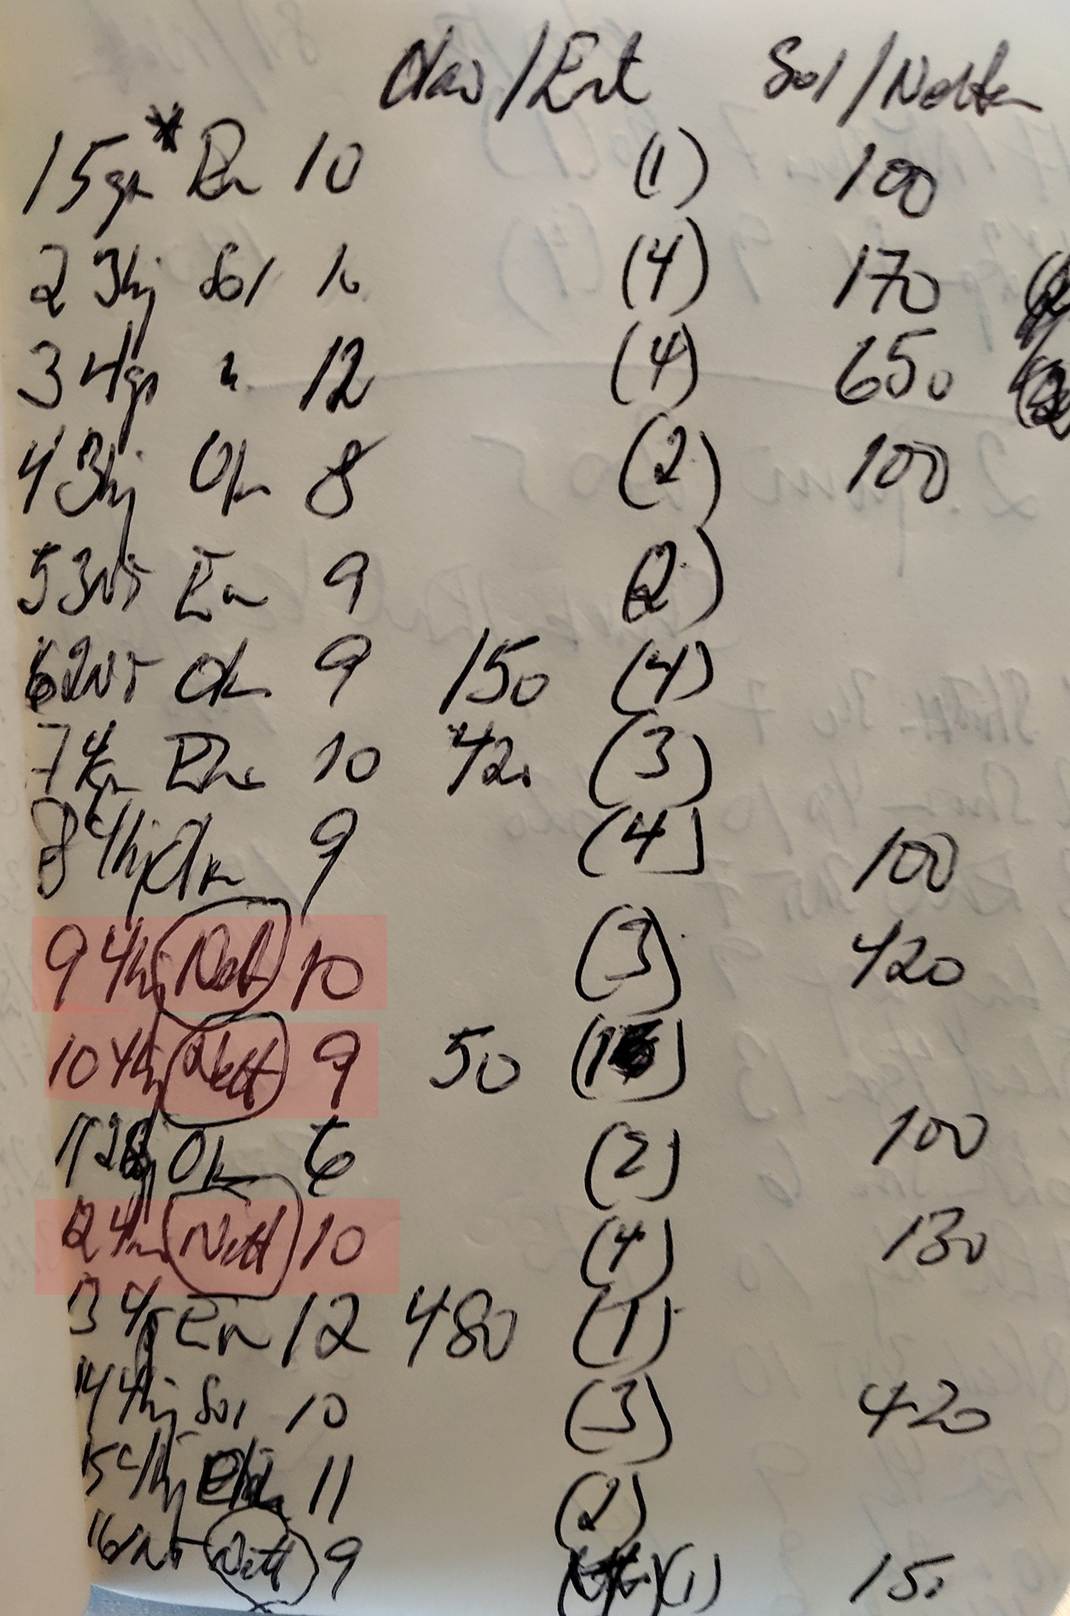 /Ert Sol/Nette
1 5gr* En 10 (1) 100
2 3hj Sol (4) 170
3 4gr " 12 (4) 650
4 3hj Ok 8 (2) 100
5 3NT En 9 (2)
6 2NT Ok 9 150 (4)
7 4 10 420 (3)
8 4hj Ok 9 (4) 100
9 4hj Nett 10 (3) 420
10 4hj Nett 9 50 (1)
11 2hj Ok 6 (2) 100
12 4 Nett 10 (4) 130
13 4 En 12 480 (1)
14 4hj Sol 10 (3) 420
15 11 (2)
16 1NT Nett 9 (1) 150